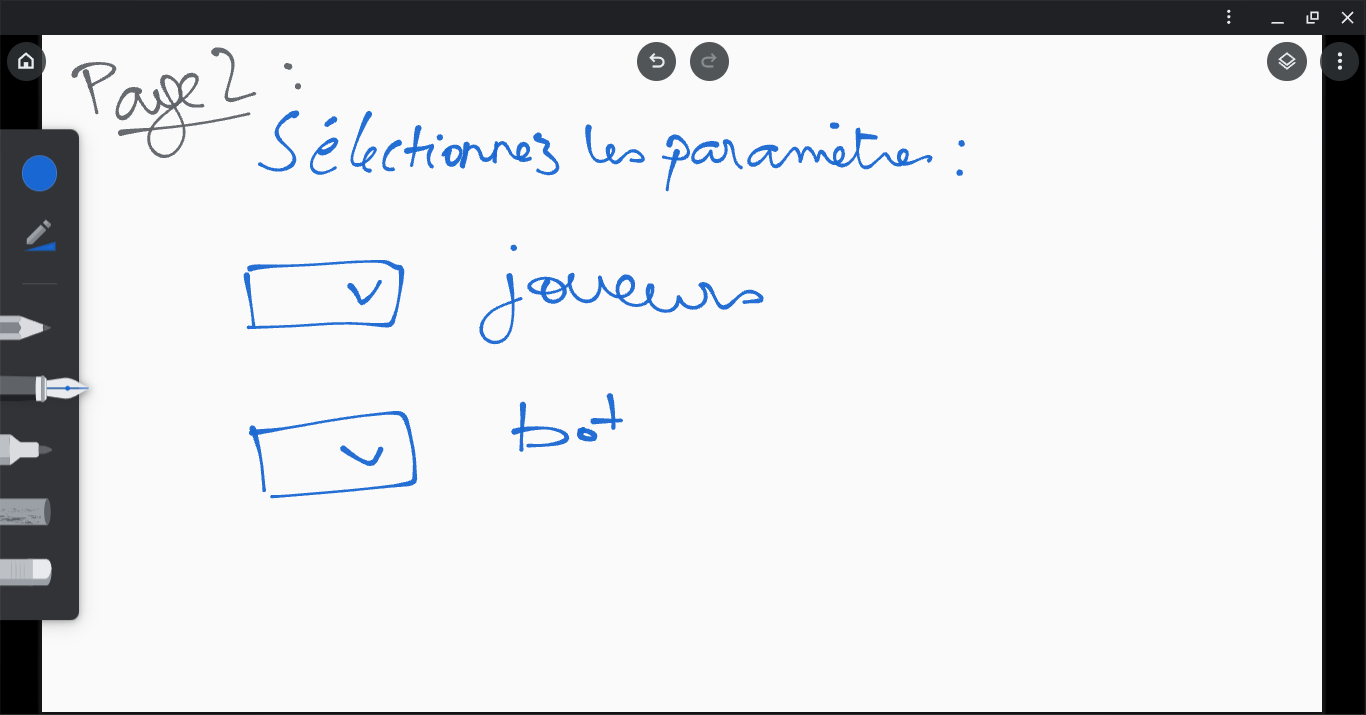 Page 2 :
Sélectionnez les paramètres :
joueurs
bot